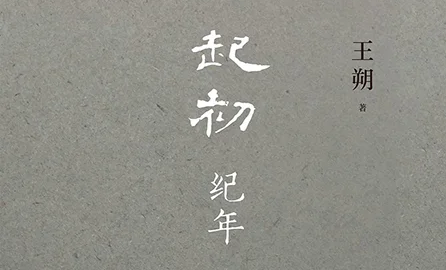 起初
纪年
王朔
著